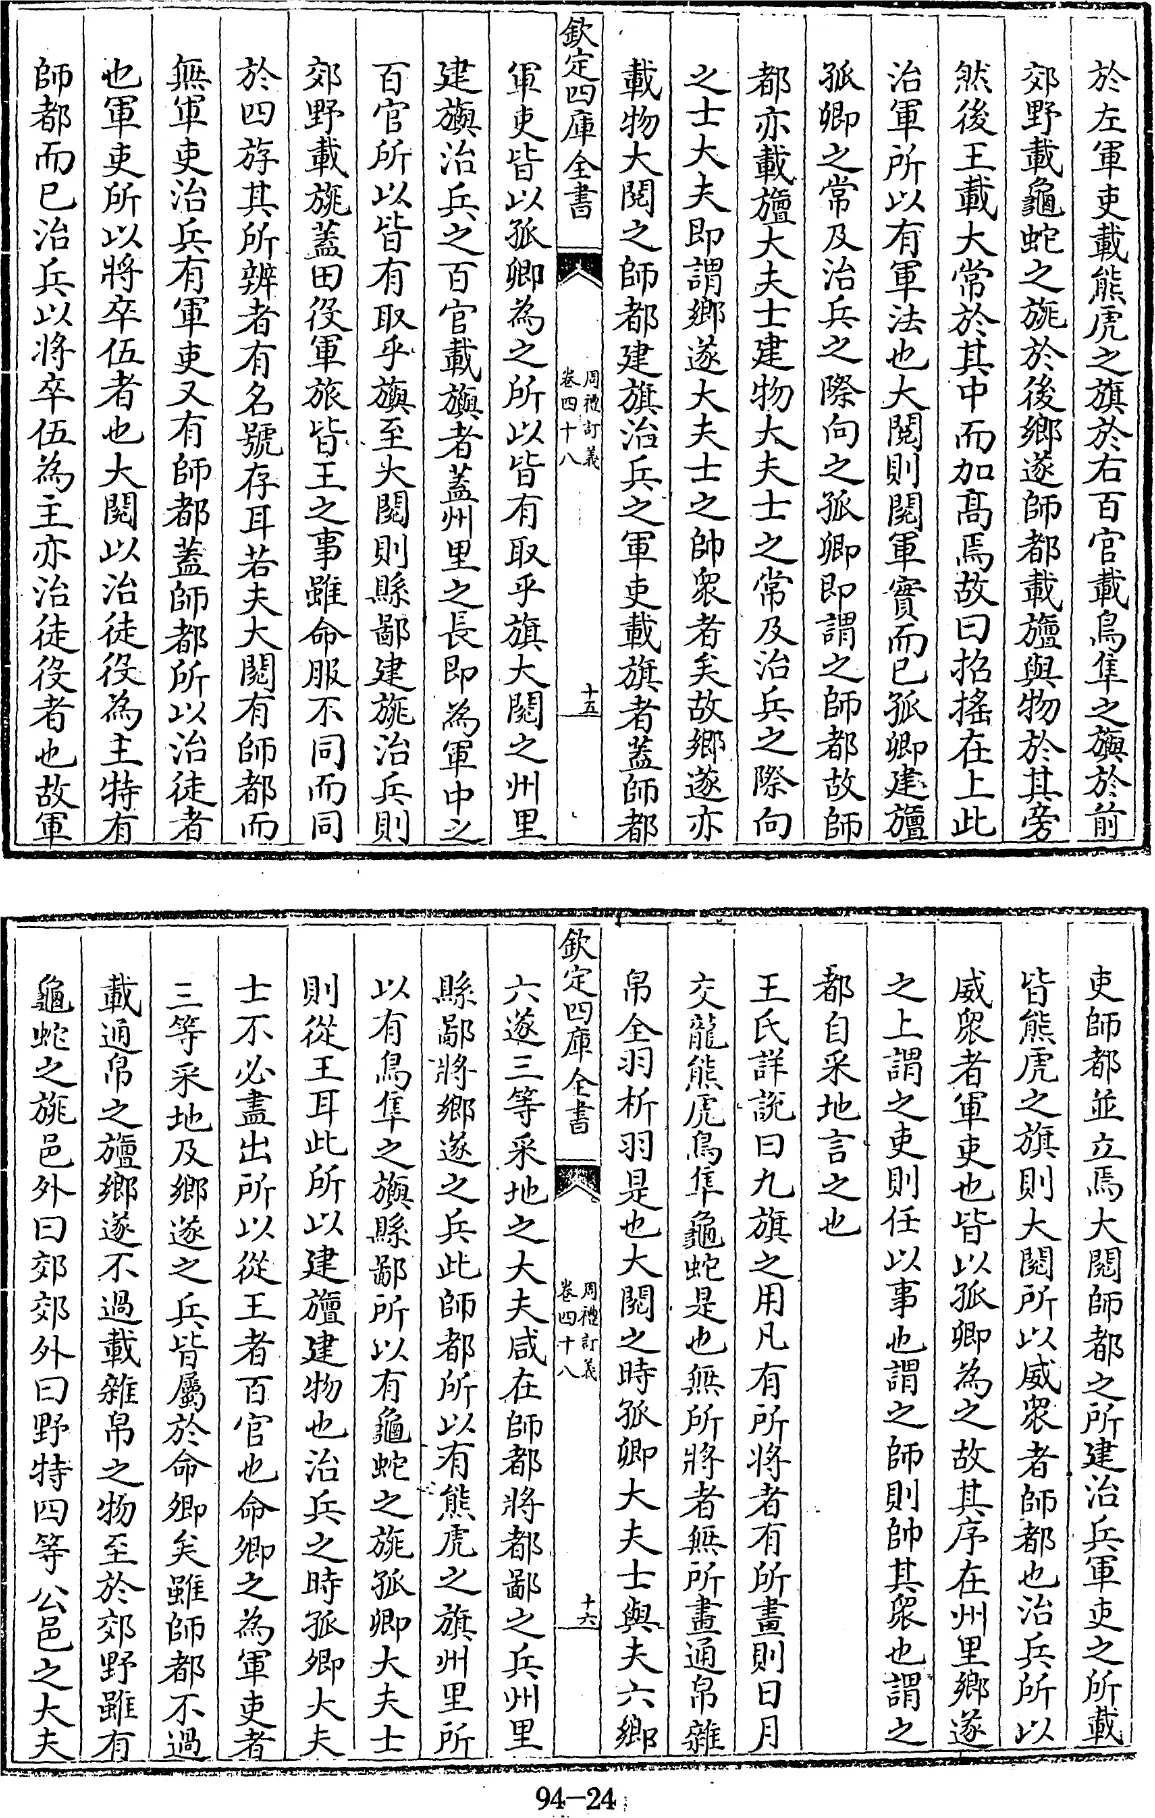 於左軍吏載熊虎之旗於右百官載鳥隼之旟於前
郊野載龜蛇之旐於後鄉遂師都載旜與物於其旁
然後王載大常於其中而加髙焉故曰招搖在上此
治軍所以有軍法也大閱則閱軍實而已孤卿建旜
孤卿之常及治兵之際向之孤卿即謂之師都故師
都亦載旜大夫士建物大夫士之常及治兵之際向
之士大夫即謂鄉遂大夫士之帥衆者矣故鄉遂亦
載物大閱之師都建旗治兵之軍吏載旗者蓋師都
欽定四庫全書
周禮訂義
卷四十八
十五
軍吏皆以孤卿為之所以皆有取乎旗大閱之州里
建旟治兵之百官載旟者蓋州里之長即為軍中之
百官所以皆有取乎旟至大閱則縣鄙建旐治兵則
郊野載旐蓋田役軍旅皆王之事雖命服不同而同
於四斿其所辨者有名號存耳若夫大閱有師都而
無軍吏治兵有軍吏又有師都蓋師都所以治徒者
也軍吏所以將卒伍者也大閱以治徒役為主特有
師都而已治兵以將卒伍為主亦治徒役者也故軍
吏師都並立焉大閱師都之所建治兵軍吏之所載
皆熊虎之旗則大閱所以威衆者師都也治兵所以
威衆者軍吏也皆以孤卿為之故其序在州里鄉遂
之上謂之吏則任以事也謂之師則帥其衆也謂之
都自采地言之也
王氏詳說曰九旗之用凡有所將者有所畫則日月
交龍熊虎鳥隼龜蛇是也無所將者無所畫通帛雜
帛全羽析羽是也大閱之時孤卿大夫士與夫六鄉
欽定四庫全書
周禮訂義
卷四十八
十六
六遂三等采地之大夫咸在師都將都鄙之兵州里
縣鄙將鄉遂之兵此師都所以有熊虎之旗州里所
以有鳥隼之旟縣鄙所以有龜蛇之旐孤卿大夫士
則從王耳此所以建旜建物也治兵之時孤卿大夫
士不必盡出所以從王者百官也命卿之為軍吏者
三等采地及鄉遂之兵皆屬於命卿矣雖師都不過
載通帛之旜鄉遂不過載雜帛之物至於郊野雖有
龜蛇之旐邑外曰郊郊外曰野特四等公邑之大夫
94-24